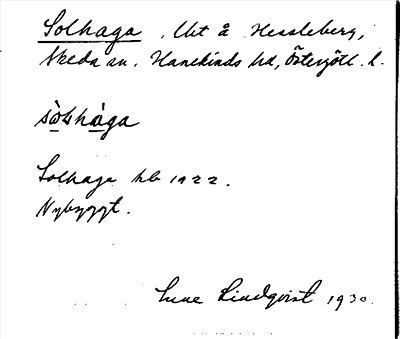 Solhaga . Uht å Hessleberg,
Skeda sn. Hanekinds hd, Östergötl. l.
sò̱lshà̱ga
Solhaga hb 1922.
Nybyggt.
Sune Lindqvist 1930.